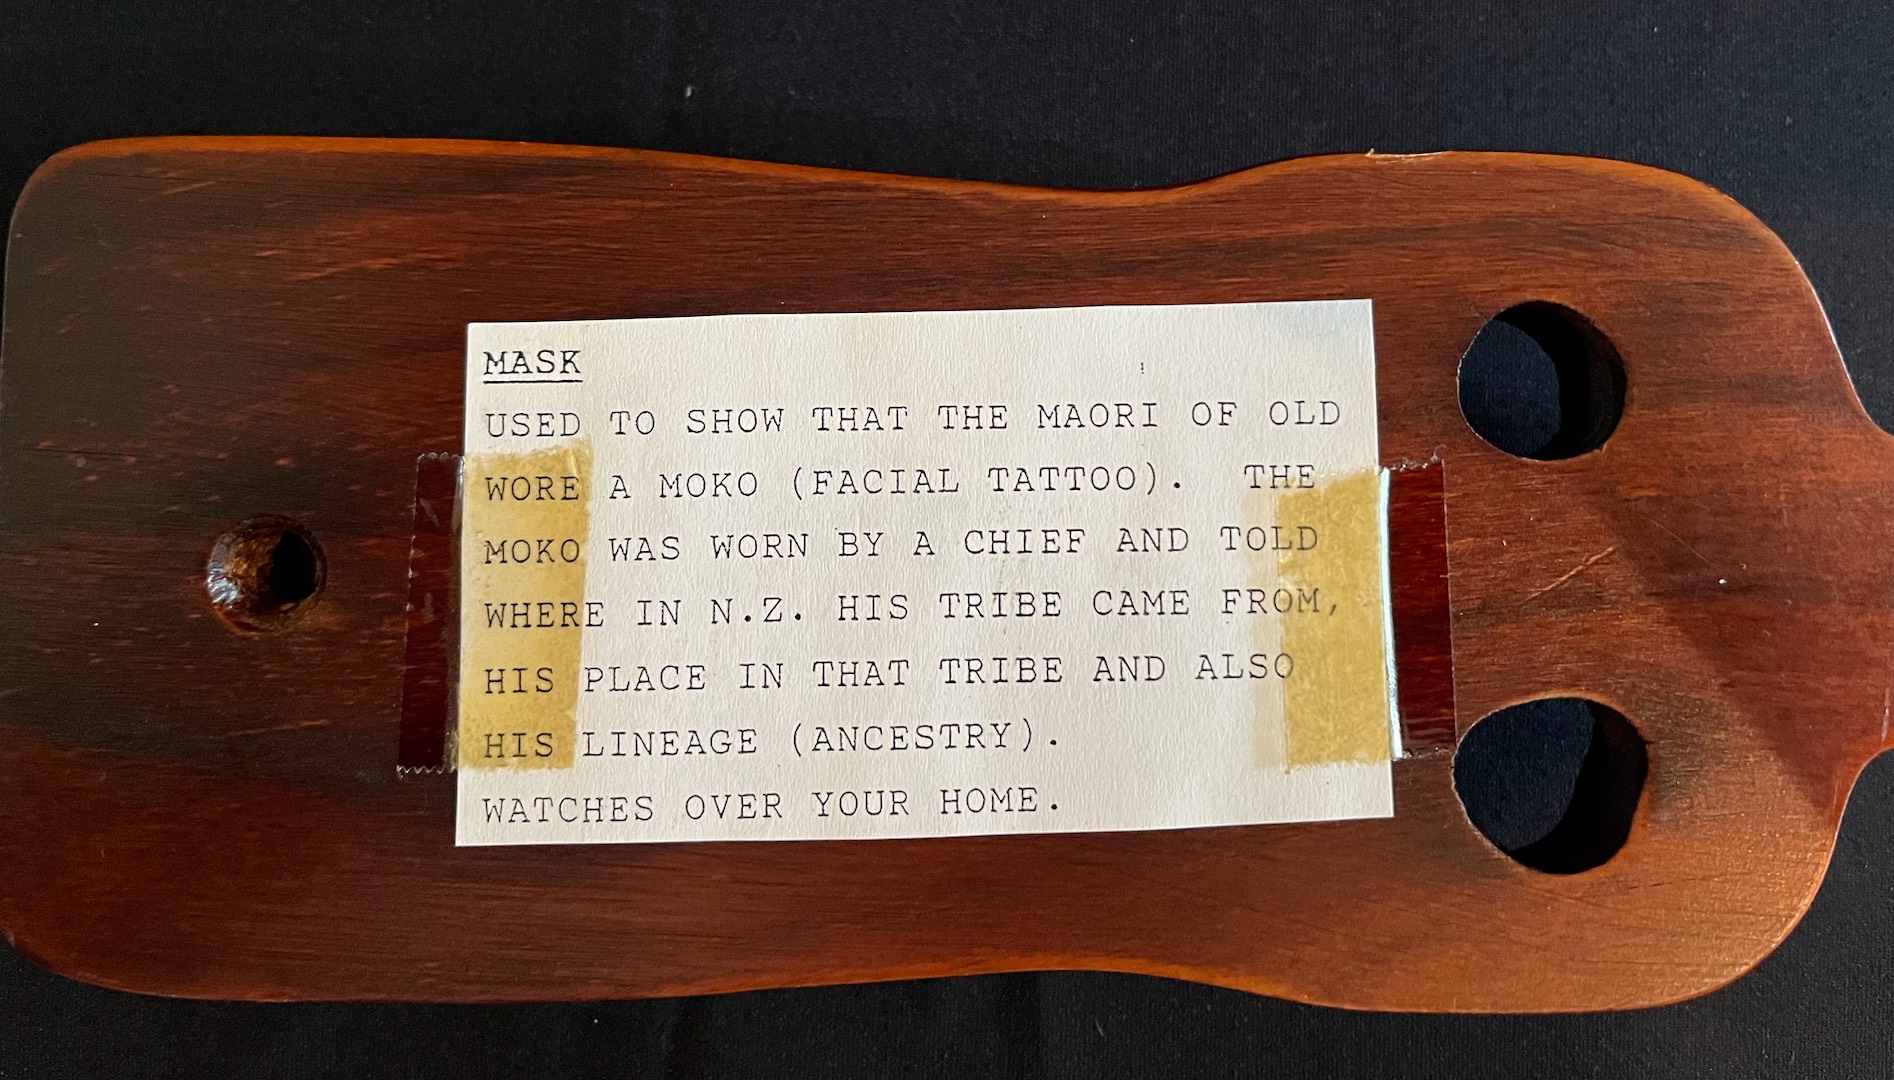 MASK
USED TO SHOW THAT THE MAORI OF OLD
WORE A MOKO (FACIAL TATTOO). THE
MOKO WAS WORN BY A CHIEF AND TOLD
WHERE IN N.Z. HIS TRIBE CAME FROM,
HIS PLACE IN THAT TRIBE AND ALSO
HIS LINEAGE (ANCESTRY).
WATCHES OVER YOUR HOME.